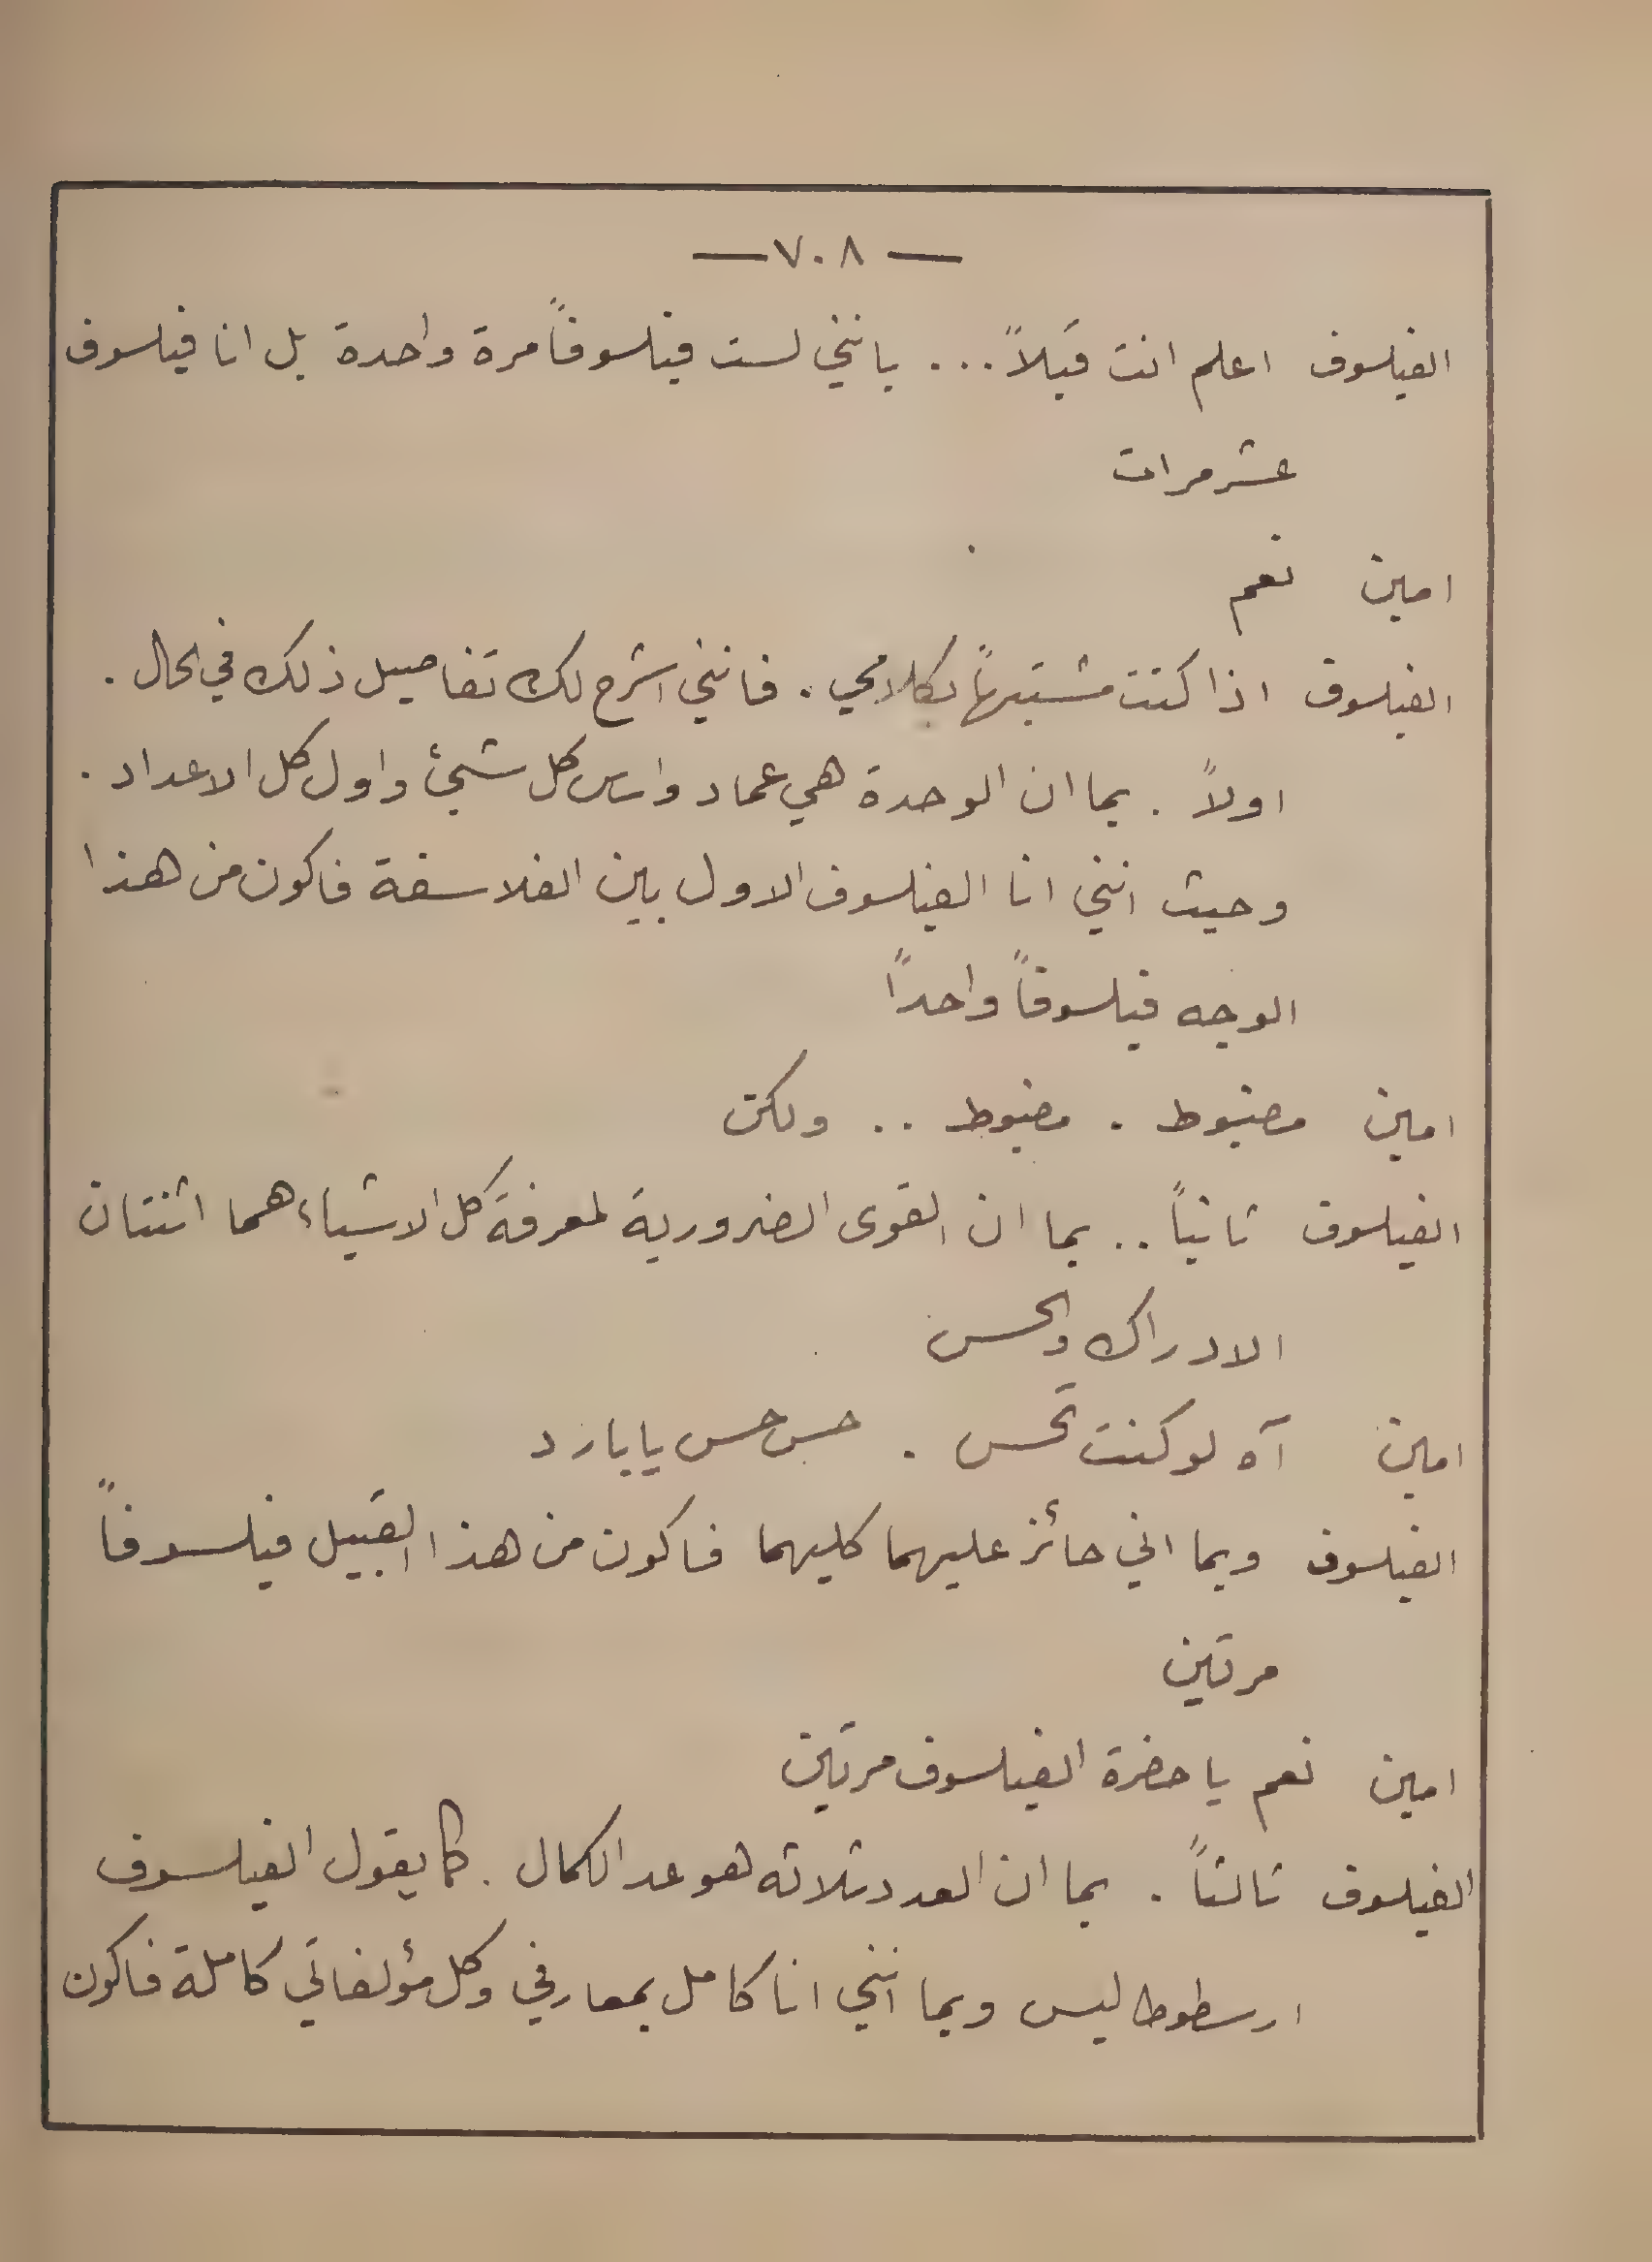 — ٧٠٨ —
الفيلسوف اعلم انت قبلاً ... بانني لست فيلسوفاً مرة واحدة بل انا فيلسوف
عشر مرات
امين نعم
الفيلسوف اذا كنت مشتبهاً بكلامي . فانني اشرح لك تفاصيل ذلك في الحال .
اولاً . بما ان الوحدة هي عماد واساس كل شيئ واول كل الاعداد .
وحيث انني انا الفيلسوف الاول بين الفلاسفة فاكون من هذا
الوجه فيلسوفاً واحداً
امين مضبوط . مضبوط .. ولكن
الفيلسوف ثانياً .. بما ان القوى الضرورية لمعرفة كل الاشياء هما اثنتان
الادراك والحس
امين آه لو كنت تحس . حس حس يا بارد
الفيلسوف وبما اني حائز عليهما كليهما فاكون من هذا القبيل فيلسوفاً
مرتين
امين نعم يا حضرة الفيلسوف مرتين
الفيلسوف ثالثاً . بما ان العدد ثلاثه هو عدد الكمال . كما يقول الفيلسوف
ارسطوطاليس وبما انني انا كامل بمعارفي وكل مؤلفاتي كاملة فاكون